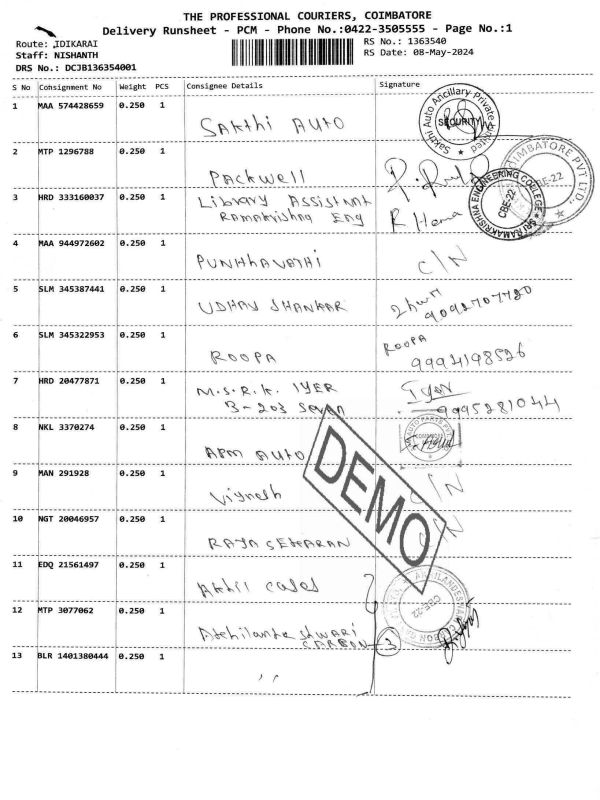 THE PROFESSIONAL COURIERS, COIMBATORE
Delivery Runsheet - PCM - Phone No.:0422-3505555 - Page No.:1
Route: IDIKARAI
RS No.: 1363540
Staff: NISHANTH
RS Date: 08-May-2024
DRS No.: DCJB136354001
S No Cohsignment No Weight PCS Consignee Details Signature
1 MAA 574428659 0.250 1 Sakthi Auto
Sakthi Auto Ancillary Private Limited
SECURITY
2 MTP 1296788 0.250 1 Packwell
COIMBATORE PVT LTD.,
CBE-22
3 HRD 333160037 0.250 1 Library Assistant
Ramakrishna Eng R Hema
SRI RAMAKRISHNA ENGINEERING COLLEGE
CBE-22
4 MAA 944972602 0.250 1 C/N
5 SLM 345387441 0.250 1 UDHAY SHANKAR
9092707780
6 SLM 345322953 0.250 1 ROOPA ROOPA
9994198526
7 HRD 20477871 0.250 1 M.S.R.K. IYER Iyer
B-203 Seven 9995281044
8 NKL 3370274 0.250 1 ARM AUTO
AUTO PARTS PVT
9 MAN 291928 0.250 1 Vignesh C/N
10 NGT 20046957 0.250 1 RAJASEKARAN C/N
DEMO
11 EDQ 21561497 0.250 1 Akhil
12 MTP 3077062 0.250 1
CARBON 3
CBE-22
13 BLR 1401380444 0.250 1 ''